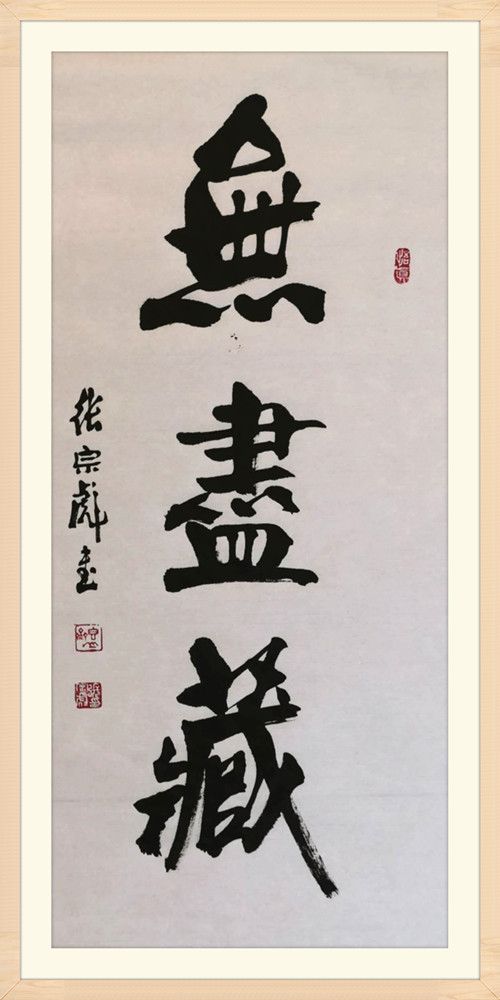 無盡藏
張宗彪書